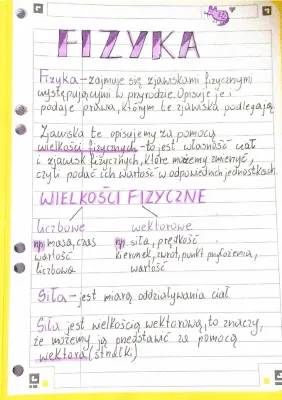 FIZYKA
Fizyka - zajmuje się zjawiskami fizycznymi
występującymi w przyrodzie. Opisuje je i
podaje prawa, którym te zjawiska podlegają.
Zjawiska te opisujemy za pomocą
wielkości fizycznych - to jest własność ciał
i zjawisk fizycznych, które możemy zmierzyć,
czyli podać ich wartość w odpowiednich jednostkach.
WIELKOŚCI FIZYCZNE
liczbowe wektorowe
np masa, czas np. siła, prędkość
wartość kierunek, zwrot, punkt przyłożenia,
liczbowa wartość
Siła - jest miarą oddziaływania ciał
Siła jest wielkością wektorową, to znaczy,
że możemy ją przedstawić za pomocą
wektora (strzałki)